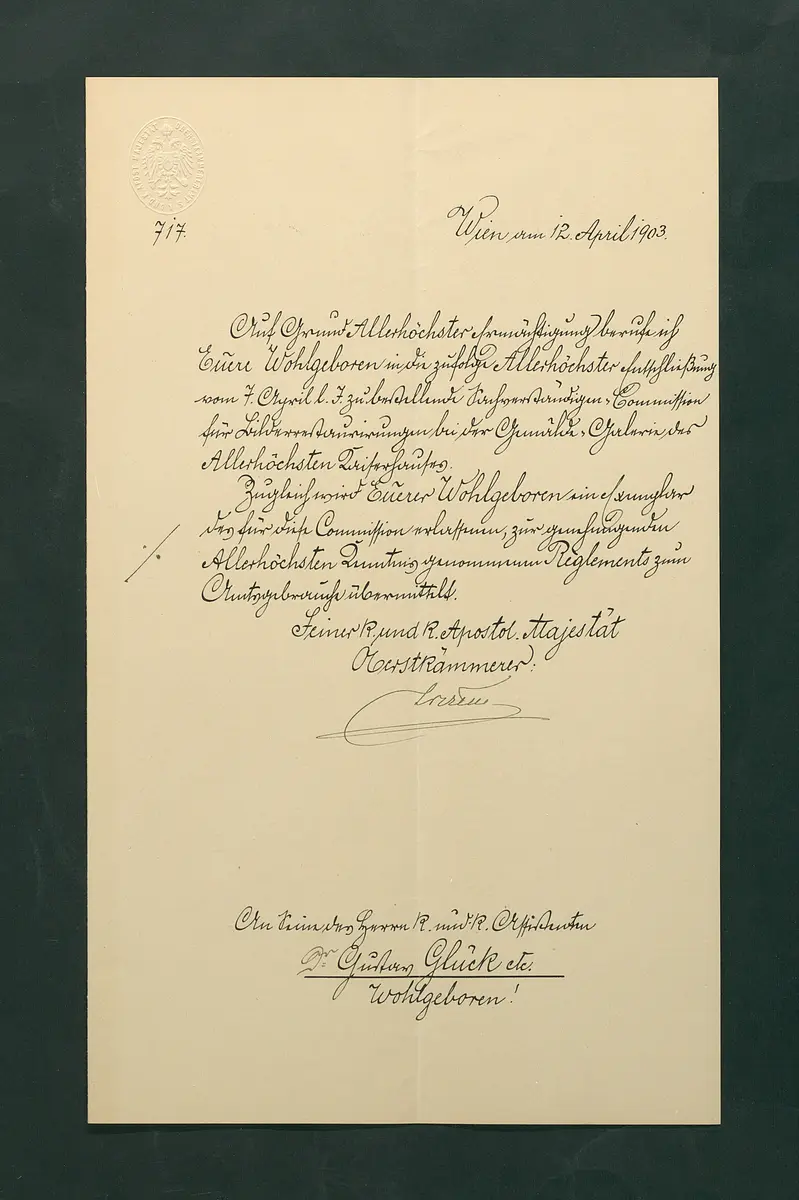 717.
Wien am 12. April 1903.
Auf Grund Allerhöchster Ermächtigung berufe ich
Euere Wohlgeboren in die zufolge Allerhöchster Entschließung
vom 7. April l. J. zu bestellende Sachverständigen-Commission
für Bilderrestaurirungen bei der Gemälde-Galerie des
Allerhöchsten Kaiserhauses.
Zugleich wird Euerer Wohlgeboren ein Exemplar
des für diese Commission erlassenen, zur genehmigenden
Allerhöchsten Kenntnis genommenen Reglements zum
Amtsgebrauche übermittelt.
Seiner k. und k. Apostol. Majestät
Oberstkämmerer:
An Seine des Herrn k. und k. Assistenten
Dr. Gustav Glück etc.
Wohlgeboren!